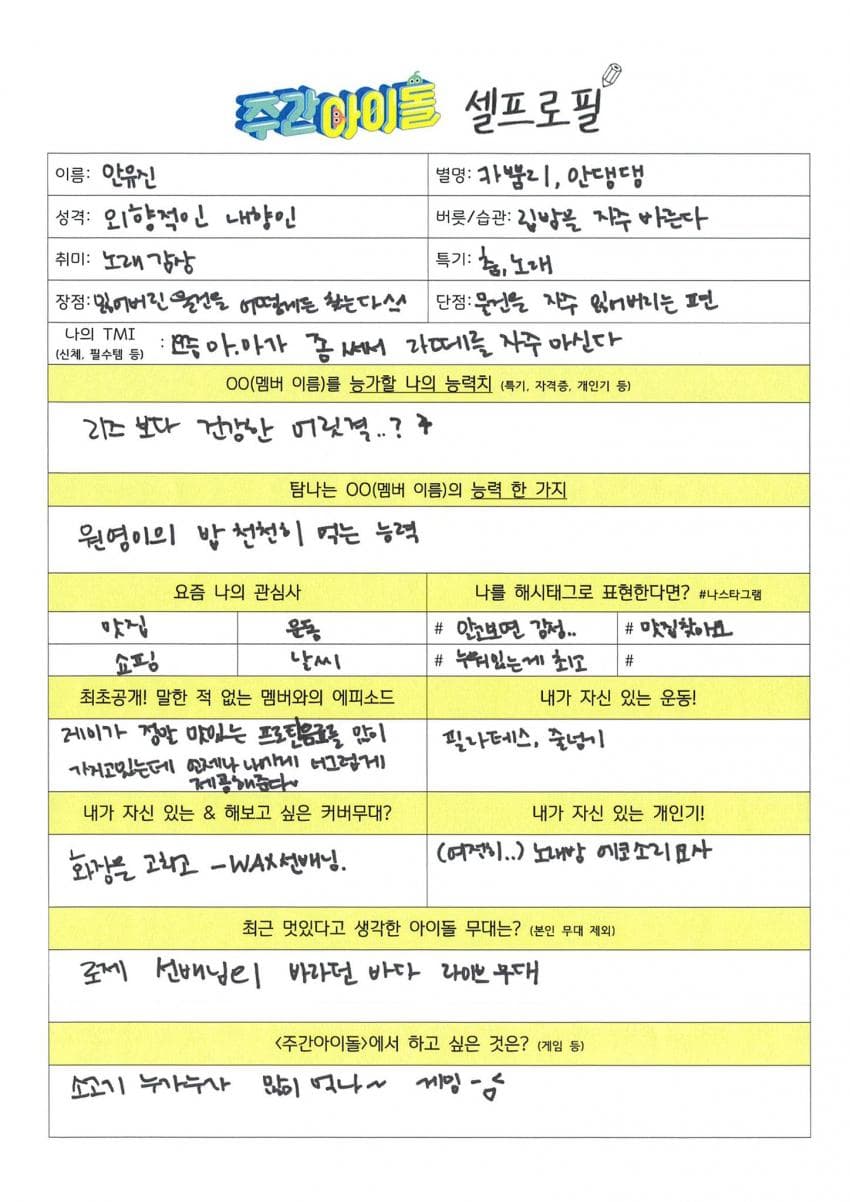 주간아이돌 셀프로필
이름: 안유진 별명: 카뿜리, 안댕댕
성격: 외향적인 내향인 버릇/습관: 립밤을 자주 바른다
취미: 노래감상 특기: 춤, 노래
장점: 잃어버린 물건을 어떻게든 찾는다 ^^ 단점: 물건을 자주 잃어버리는 편
나의 TMI
(신체, 필수템 등) : 요즘 아.아가 좀 써서 라떼를 자주 마신다
OO(멤버 이름)를 능가할 나의 능력치 (특기, 자격증, 개인기 등)
리즈 보다 건강한 머릿결..?
탐나는 OO(멤버 이름)의 능력 한 가지
원영이의 밥 천천히 먹는 능력
요즘 나의 관심사 나를 해시태그로 표현한다면? #나스타그램
맛집 운동 # 안소보면 감정.. # 맛집찾아요
쇼핑 날씨 # 누워있는게 최고 #
최초공개! 말한 적 없는 멤버와의 에피소드 내가 자신 있는 운동!
레이가 정말 맛있는 프로틴음료를 많이
가지고있는데 언제나 나에게 너그럽게
제공해준다~
필라테스, 줄넘기
내가 자신 있는 & 해보고 싶은 커버무대? 내가 자신 있는 개인기!
화장을 고치고 - WAX선배님. (여전히..) 노래방 에코소리 묘사
최근 멋있다고 생각한 아이돌 무대는? (본인 무대 제외)
로제 선배님의 바라던 바다 라이브 무대
<주간아이돌>에서 하고 싶은 것은? (게임 등)
소고기 누가누가 많이 먹나~ 게임